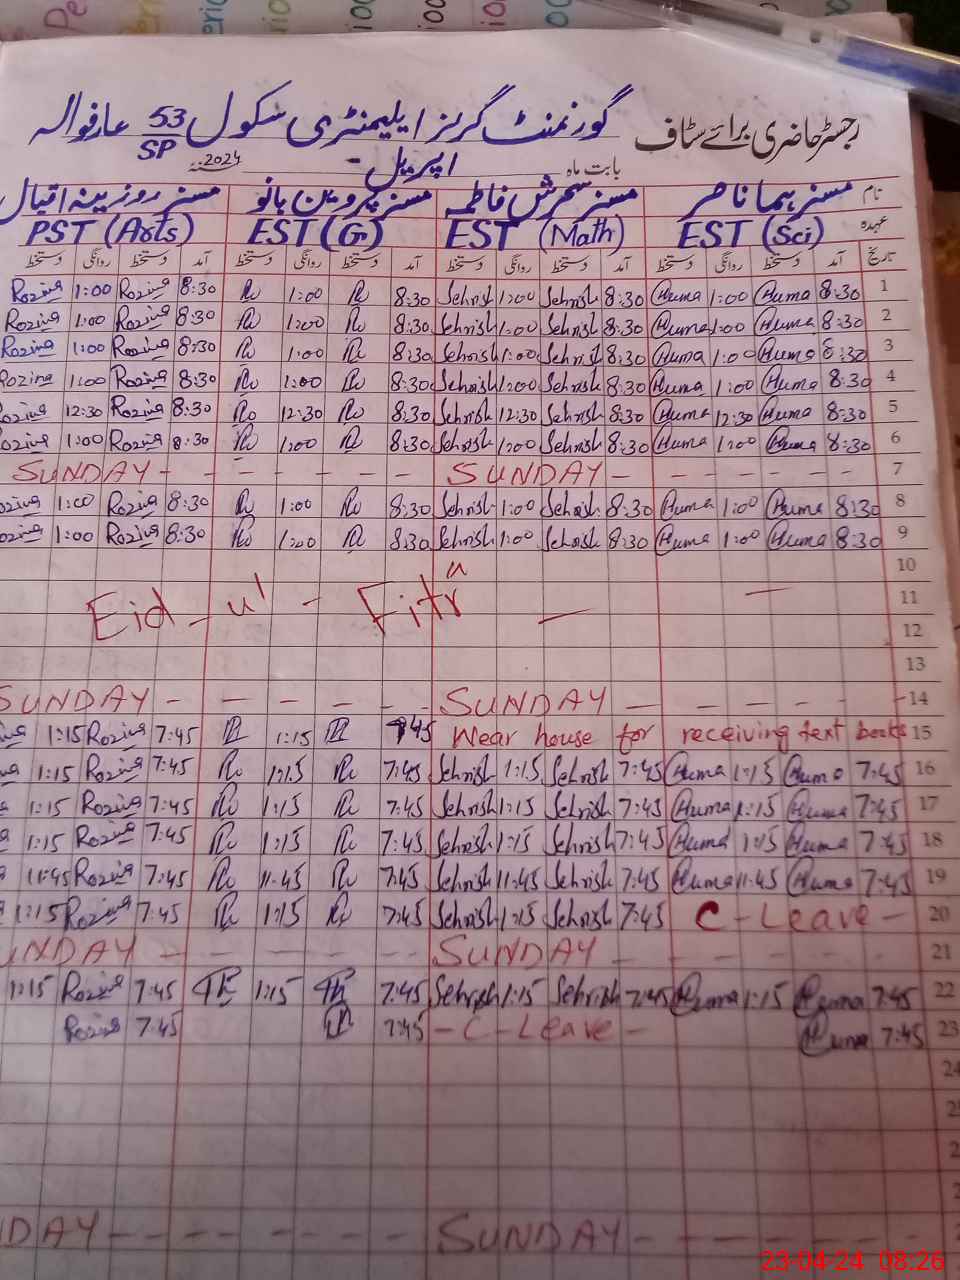 رجسٹر حاضری برائے سٹاف گورنمنٹ گرلز ایلیمنٹری سکول 53/SP عارفوالہ
بابت ماہ اپریل 2024
نام مسز ہما ناصر مسز سحرش فاطمہ مسز پروین بانو مسز روزینہ اقبال
عہدہ EST (Sci) EST (Math) EST (G) PST (Arts)
تاریخ آمد دستخط روانگی دستخط آمد دستخط روانگی دستخط آمد دستخط روانگی دستخط آمد دستخط روانگی دستخط
1 8:30 Huma 1:00 Huma 8:30 Sehrish 1:00 Sehrish 8:30 1:00 8:30 Rozina 1:00 Rozina
2 8:30 Huma 1:00 Huma 8:30 Sehrish 1:00 Sehrish 8:30 1:00 8:30 Rozina 1:00 Rozina
3 8:30 Huma 1:00 Huma 8:30 Sehrish 1:00 Sehrish 8:30 1:00 8:30 Rozina 1:00 Rozina
4 8:30 Huma 1:00 Huma 8:30 Sehrish 1:00 Sehrish 8:30 1:00 8:30 Rozina 1:00 Rozina
5 8:30 Huma 12:30 Huma 8:30 Sehrish 12:30 Sehrish 8:30 12:30 8:30 Rozina 12:30 Rozina
6 8:30 Huma 1:00 Huma 8:30 Sehrish 1:00 Sehrish 8:30 1:00 8:30 Rozina 1:00 Rozina
7 SUNDAY SUNDAY
8 8:30 Huma 1:00 Huma 8:30 Sehrish 1:00 Sehrish 8:30 1:00 8:30 Rozina 1:00 Rozina
9 8:30 Huma 1:00 Huma 8:30 Sehrish 1:00 Sehrish 8:30 1:00 8:30 Rozina 1:00 Rozina
10
11 Eid - ul - Fitr
12
13
14 SUNDAY SUNDAY
15 Wear house for receiving text books 7:45 1:15 7:45 Rozina 1:15
16 7:45 Huma 1:15 Huma 7:45 Sehrish 1:15 Sehrish 7:45 1:15 7:45 Rozina 1:15
17 7:45 Huma 1:15 Huma 7:45 Sehrish 1:15 Sehrish 7:45 1:15 7:45 Rozina 1:15
18 7:45 Huma 1:15 Huma 7:45 Sehrish 1:15 Sehrish 7:45 1:15 7:45 Rozina 1:15
19 7:45 Huma 11:45 Huma 7:45 Sehrish 11:45 Sehrish 7:45 11:45 7:45 Rozina 11:45
20 C - Leave - 7:45 Sehrish 1:15 Sehrish 7:45 1:15 7:45 Rozina 1:15
21 SUNDAY UNDAY
22 7:45 Huma 1:15 Huma 7:45 Sehrish 1:15 Sehrish 7:45 1:15 7:45 Rozina 1:15
23 7:45 Huma - C - Leave - 7:45 7:45 Rozina
24
25
SUNDAY DAY
23-04-24 08:26